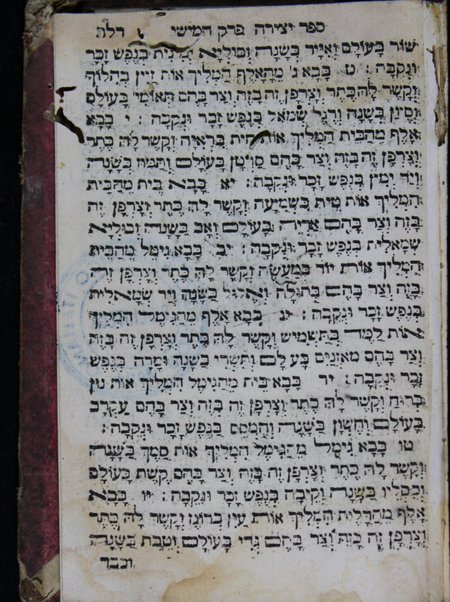 ספר יצירה פרק חמישי רלה
שור בעולם ואייר בשנה וכוליא ימנית בנפש זכר
ונקבה: ט בבא ג מהאלף המליך אות זיין בהלוך
וקשר לה כתר וצרפן זה בזה וצר בהם תאומי בעולם
וסיון בשנה ורגל שמאל בנפש זכר ונקבה: י בבא
אלף מהבית המליך אות חית בראיה וקשר לה כתר
וצרפן זה בזה וצר בהם סרטן בעולם ותמוז בשנה
ויד ימין בנפש זכר ונקבה: יא בבא בית מהבית
המליך אות טית בשמיעה וקשר לה כתר וצרפן זה
בזה וצר בהם אריה בעולם ואב בשנה וכוליא
שמאלית בנפש זכר ונקבה: יב בבא גימל מהבית
המליך אות יוד במעשה וקשר לה כתר וצרפן זה
בזה וצר בהם בתולה ואלול בשנה ויד שמאלית
בנפש זכר ונקבה: יג בבא אלף מהגימל המליך
אות למד בתשמיש וקשר לה כתר וצרפן זה בזה
וצר בהם מאזנים בעולם ותשרי בשנה ומרה בנפש
זכר ונקבה: יד בבא בית מהגימל המליך אות נון
בריח וקשר לה כתר וצרפן זה בזה וצר בהם עקרב
בעולם וחשון בשנה והמסס בנפש זכר ונקבה:
טו בבא גימל מהגימל המליך אות סמך בשנה
וקשר לה כתר וצרפן זה בזה וצר בהם קשת בעולם
וכסליו בשנה וקיבה בנפש זכר ונקבה: יו בבא
אלף מהדלית המליך אות עין ברוגז וקשר לה כתר
וצרפן זה בזה וצר בהם גדי בעולם וטבת בשנה
וכבד